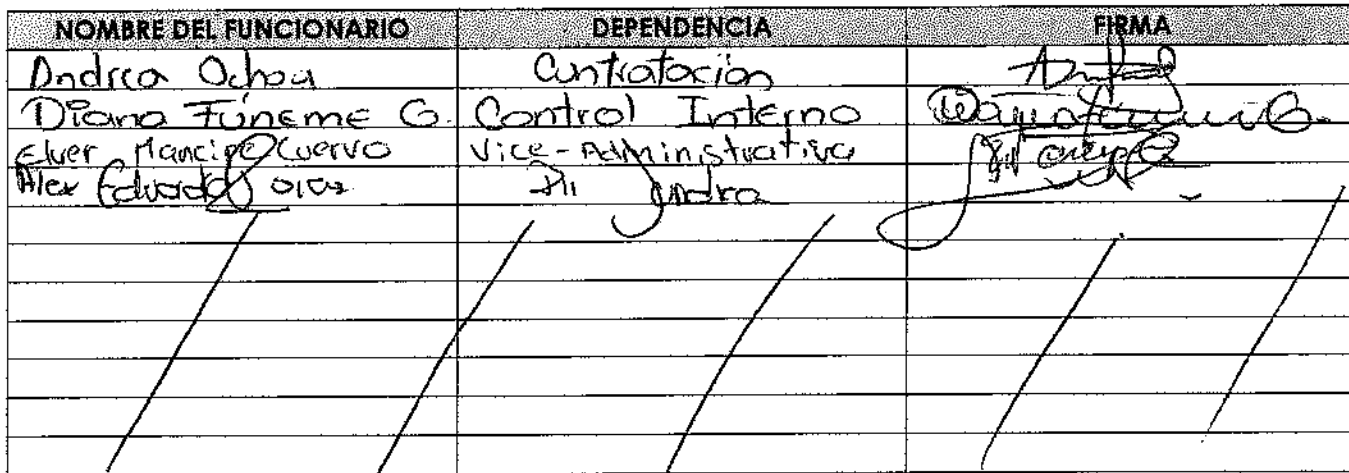 NOMBRE DEL FUNCIONARIO DEPENDENCIA FIRMA
Andrea Ochoa Contratación
Diana Fúneme G. Control Interno
Elver Mancipe Cuervo Vice-Administrativa
Alex Eduardo